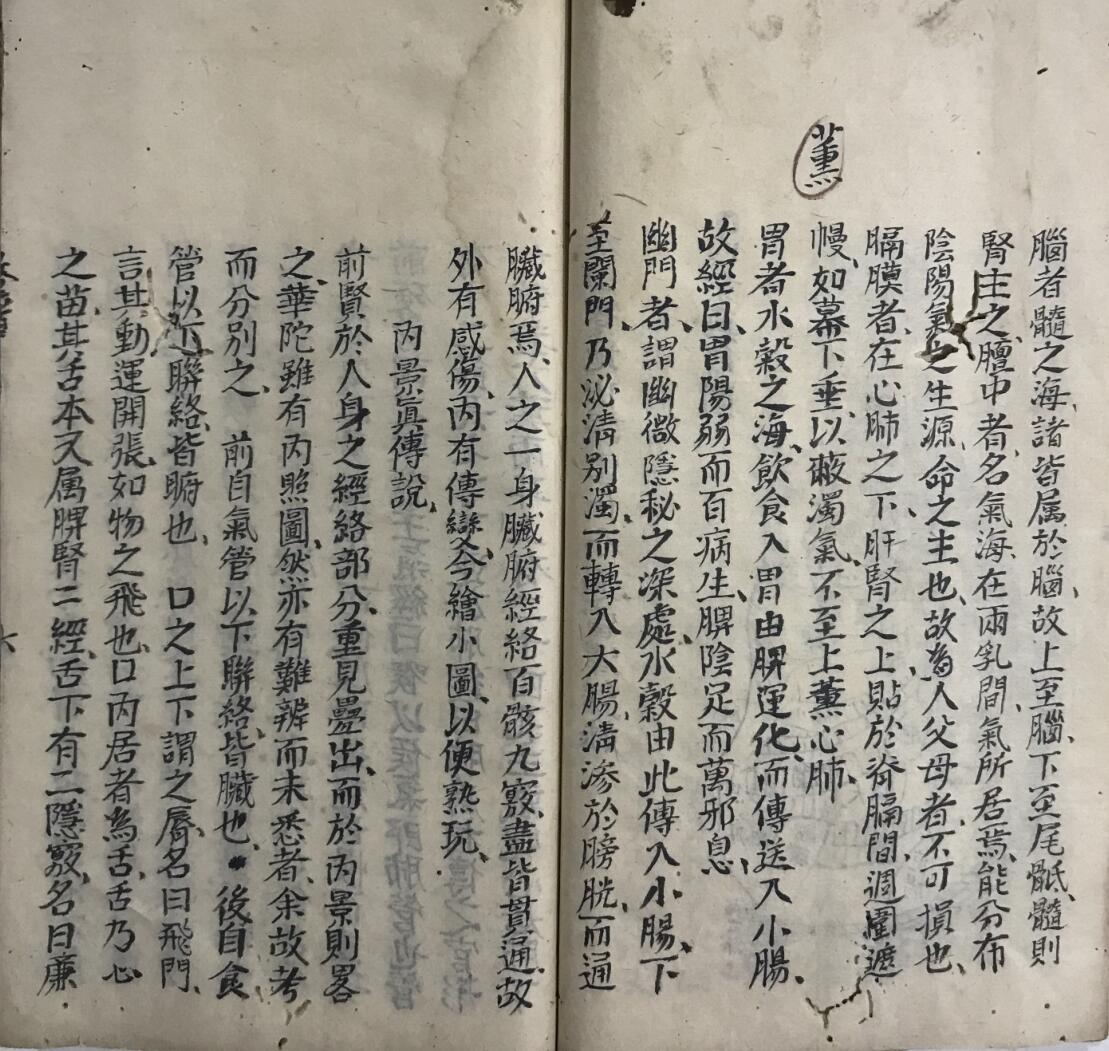 薰
腦者髓之海、諸皆属於腦、故上至腦、下至尾骶、髓則
腎主之、膻中者、名氣海、在兩乳間、氣所居焉、能分布
陰陽氣之生源、命之主也、故為人父母者、不可損也、
膈膜者、在心肺之下、肝腎之上、貼於脊膈間、週圍遮
幔、如幕下垂、以蔽濁氣、不至上薰心肺、
胃者水穀之海、飲食入胃由脾運化、而傳送入小腸、
故經曰、胃陽弱而百病生、脾陰足而萬邪息、
幽門者、謂幽微隱秘之深處、水穀由此傳入小腸、下
至闌門、乃泌清别濁、而轉入大腸、清滲於膀胱、而通
臟腑焉、人之一身臟腑經絡百骸九竅、盡皆貫通、故
外有感傷、內有傳變、今繪小圖、以便熟玩、
內景真傳說、
前賢於人身之經絡部分、重見叠出、而於內景則畧
之、華陀雖有內照圖、然亦有難辨而未悉者、余故考
而分别之、前自氣管以下聯絡、皆臟也、後自食
管以下聯絡、皆腑也、口之上下謂之唇、名曰飛門、
言其動運開張、如物之飛也、口內居者為舌、舌乃心
之苗、其舌本又属脾腎二經、舌下有二隱竅、名曰廉
六